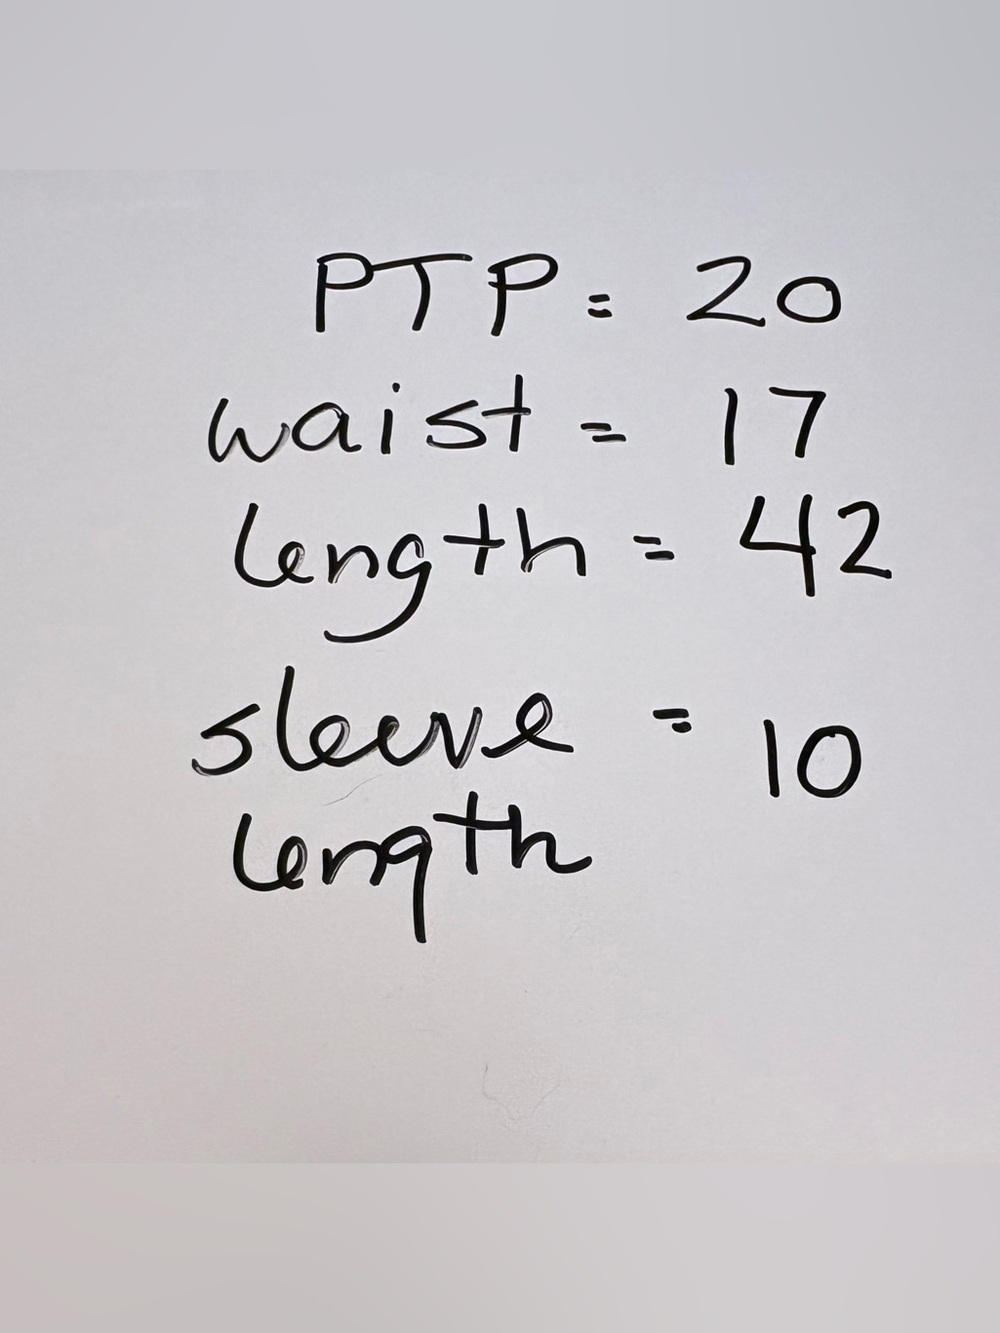 PTP = 20
waist = 17
length = 42
sleeve = 10
length